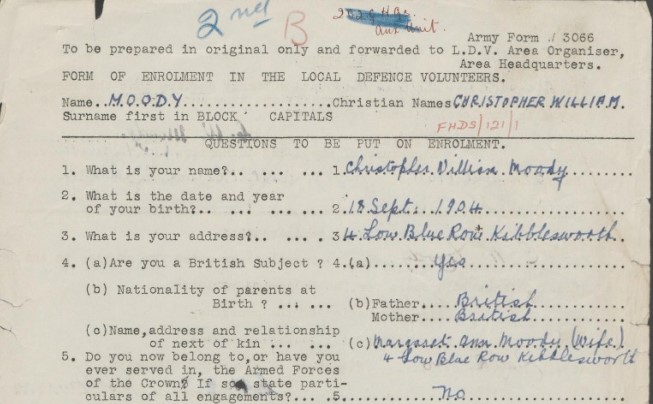 2nd B
202 G.H.Q.
Aux Unit.
Army Form 3066
To be prepared in original only and forwarded to L.D.V. Area Organiser,
Area Headquarters.
FORM OF ENROLMENT IN THE LOCAL DEFENCE VOLUNTEERS.
Name..MOODY..............Christian Names CHRISTOPHER WILLIAM.
Surname first in BLOCK CAPITALS
FHDS/121/1
QUESTIONS TO BE PUT ON ENROLMENT.
1. What is your name?.. ... ... ... 1. Christopher William Moody
2. What is the date and year
of your birth?.. ... ... ... 2. 18 Sept. 1904
3. What is your address?.. ... ... 3. 4 Low Blue Row Kibblesworth
4. (a) Are you a British Subject ? 4.(a) Yes
(b) Nationality of parents at
Birth ? ... ... ... (b) Father.... British
Mother.... British
(c) Name, address and relationship
of next of kin ... ... ... (c) Margaret Ann Moody (Wife)
4 Low Blue Row Kibblesworth
5. Do you now belong to, or have you
ever served in, the Armed Forces
of the Crown? If so, state parti-
culars of all engagements?... . 5. No